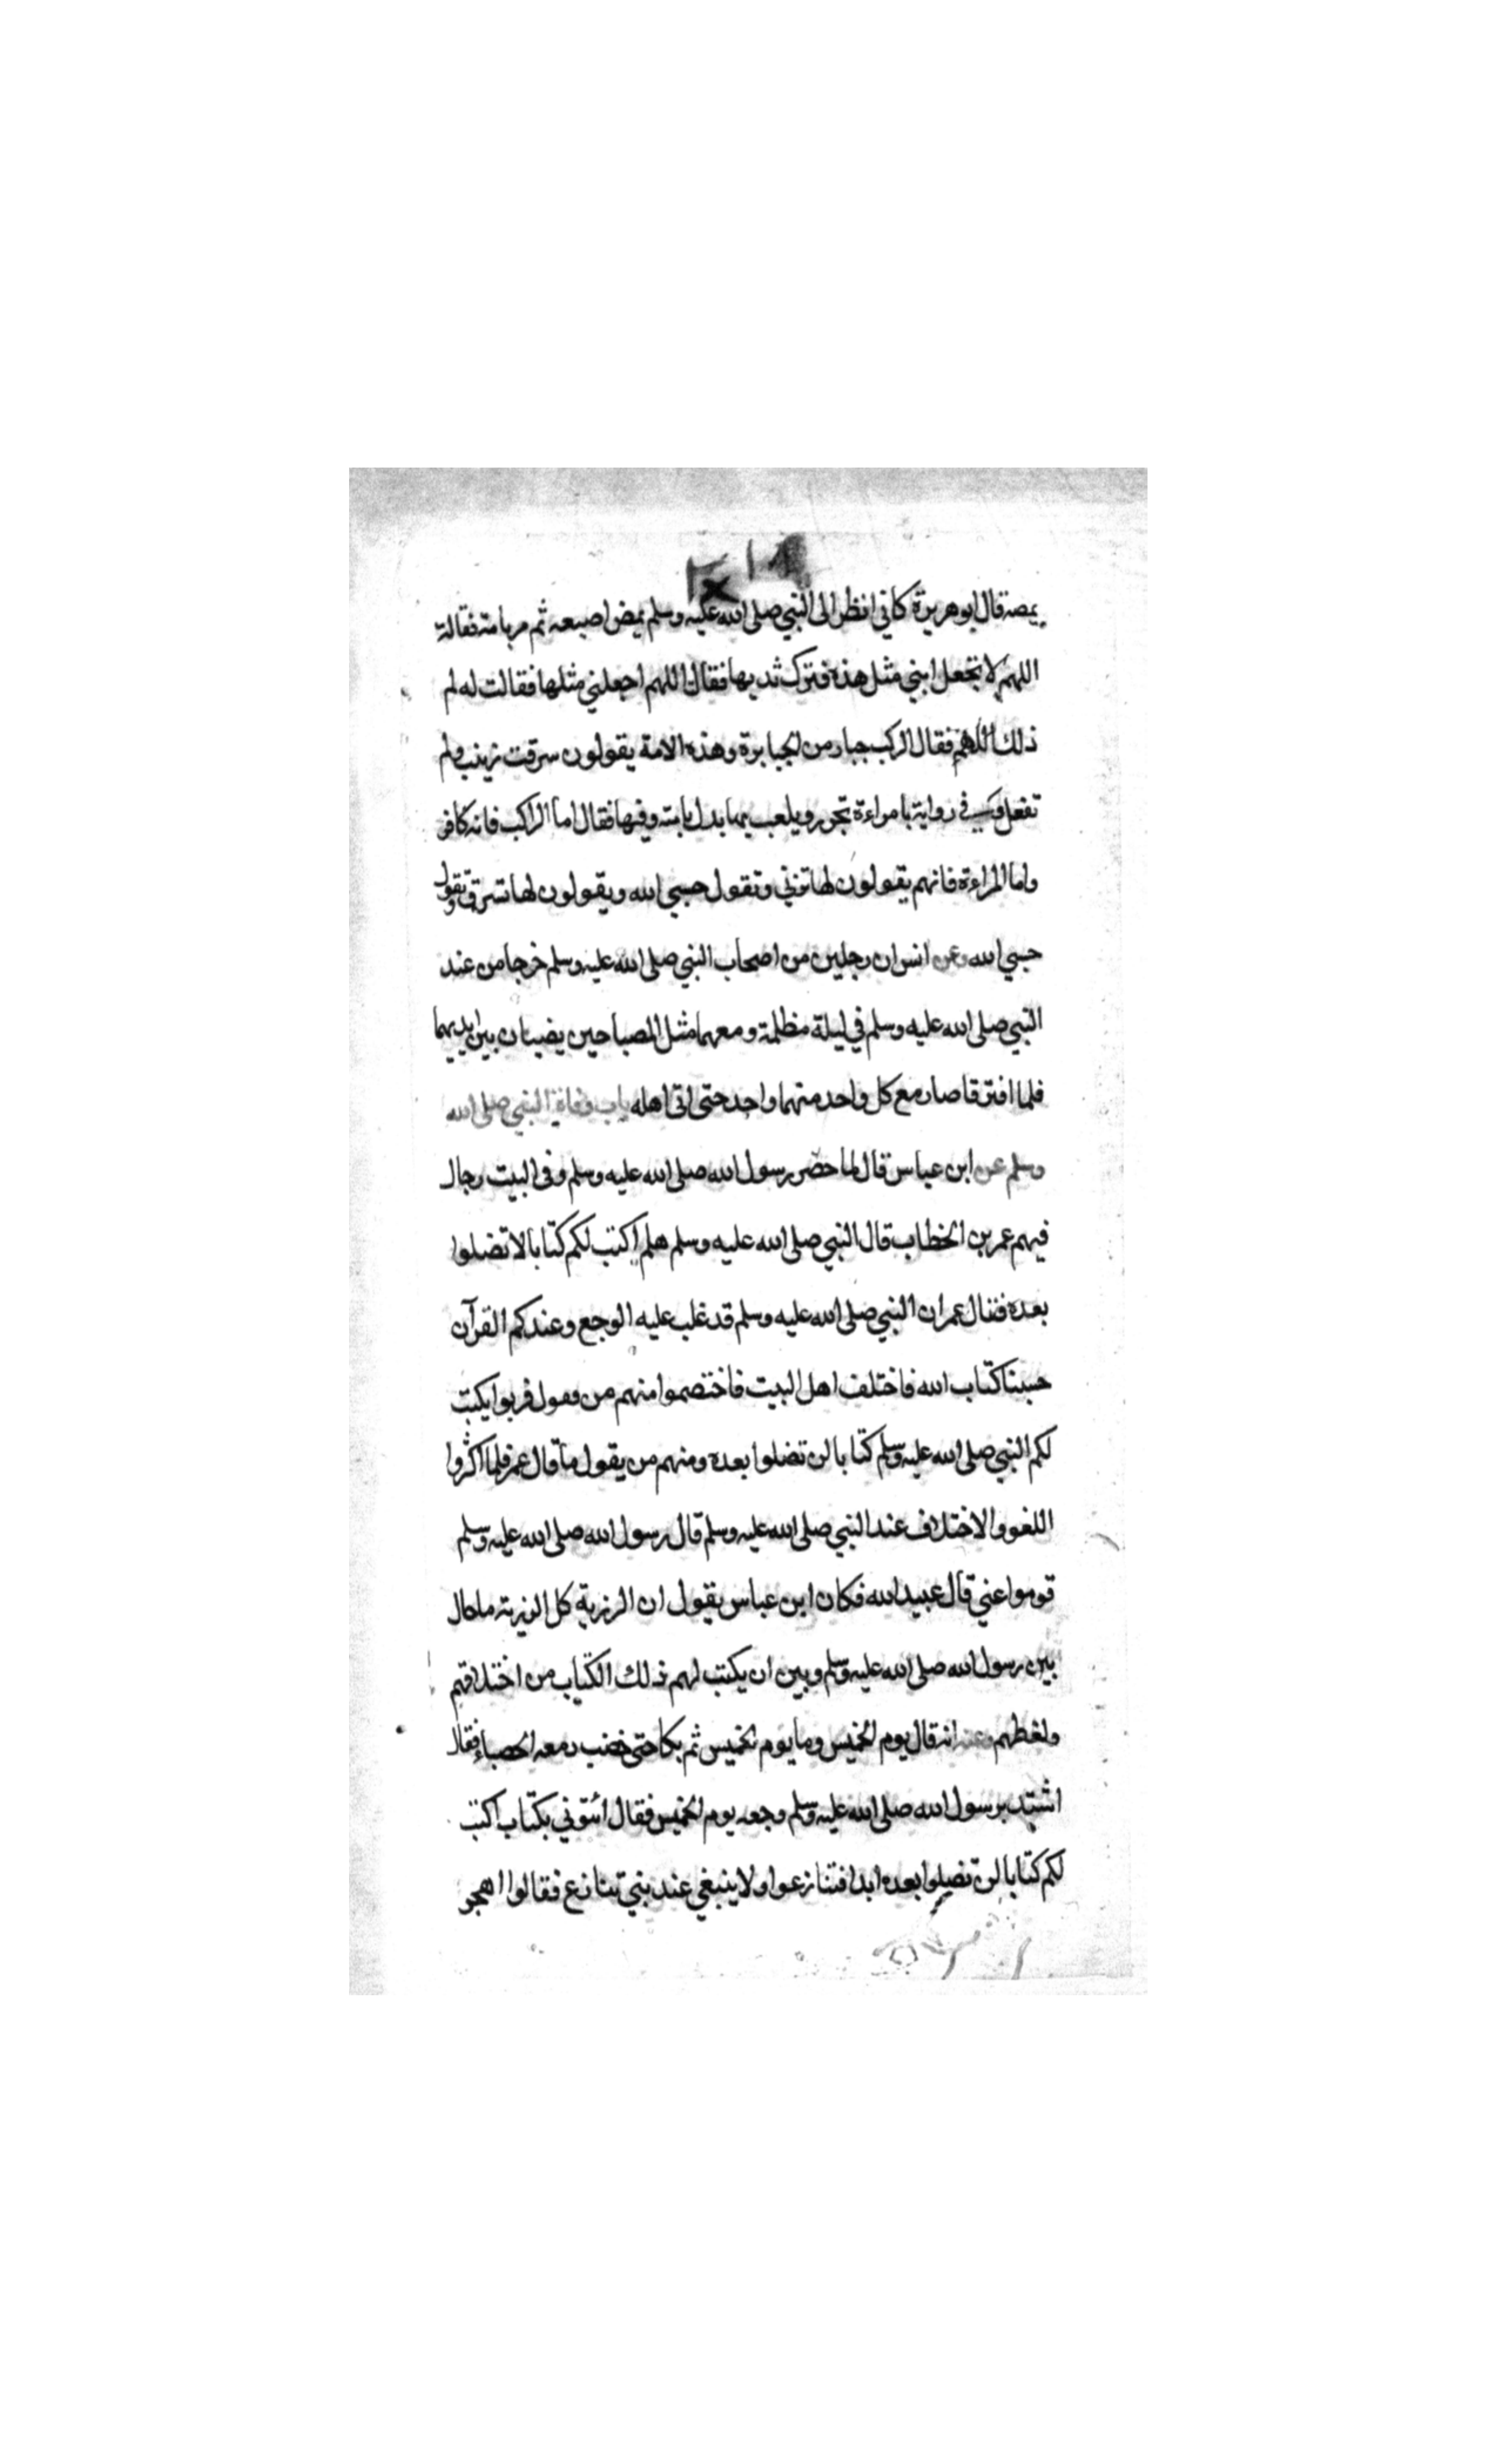 يمصه قال ابو هريرة كاني انظر الى النبي صلى الله عليه وسلم يمص اصبعه ثم مر بامته فقالة
اللهم لا تجعل ابني مثل هذه فترك ثديها فقال اللهم اجعلني مثلها فقالت له لم
ذلك فقال الركب جبار من الجبابرة وهذه الامة يقولون سرقت زينب ولم
تفعل وفي رواية بامراءة تجرر ويلعب بها بدل بامته وفيها فقال اما الراكب فانه كافر
واما المراءة فانهم يقولون لها تزني وتقول حسبي الله ويقولون لها تسرق وتقول
حسبي الله وعن انس ان رجلين من اصحاب النبي صلى الله عليه وسلم خرجا من عند
النبي صلى الله عليه وسلم في ليلة مظلمة ومعهما مثل المصباحين يضيان بين ايديهما
فلما افترقا صار مع كل واحد منهما واحد حتى اتى اهله باب وفاة النبي صلى الله
وسلم عن ابن عباس قال لما حضر رسول الله صلى الله عليه وسلم وفي البيت رجال
فيهم عمر بن الخطاب قال النبي صلى الله عليه وسلم هلم اكتب لكم كتابا لا تضلوا
بعده فقال عمر ان النبي صلى الله عليه وسلم قد غلب عليه الوجع وعندكم القرآن
حسبنا كتاب الله فاختلف اهل البيت فاختصموا منهم من يقول قربوا يكتب
لكم النبي صلى الله عليه وسلم كتابا لن تضلوا بعده ومنهم من يقول ما قال عمر فلما اكثروا
اللغو والاختلاف عند النبي صلى الله عليه وسلم قال رسول الله صلى الله عليه وسلم
قوموا عني قال عبيد الله فكان ابن عباس يقول ان الرزية كل الرزية ما حال
بين رسول الله صلى الله عليه وسلم وبين ان يكتب لهم ذلك الكتاب من اختلافهم
ولغطهم وعنه انه قال يوم الخميس وما يوم الخميس ثم بكا حتى خضب دمعه الحصباء فقال
اشتد برسول الله صلى الله عليه وسلم وجعه يوم الخميس فقال ائتوني بكتاب اكتب
لكم كتابا لن تضلوا بعده ابدا فتنازعوا ولا ينبغي عند نبي تنازع فقالوا اهجر